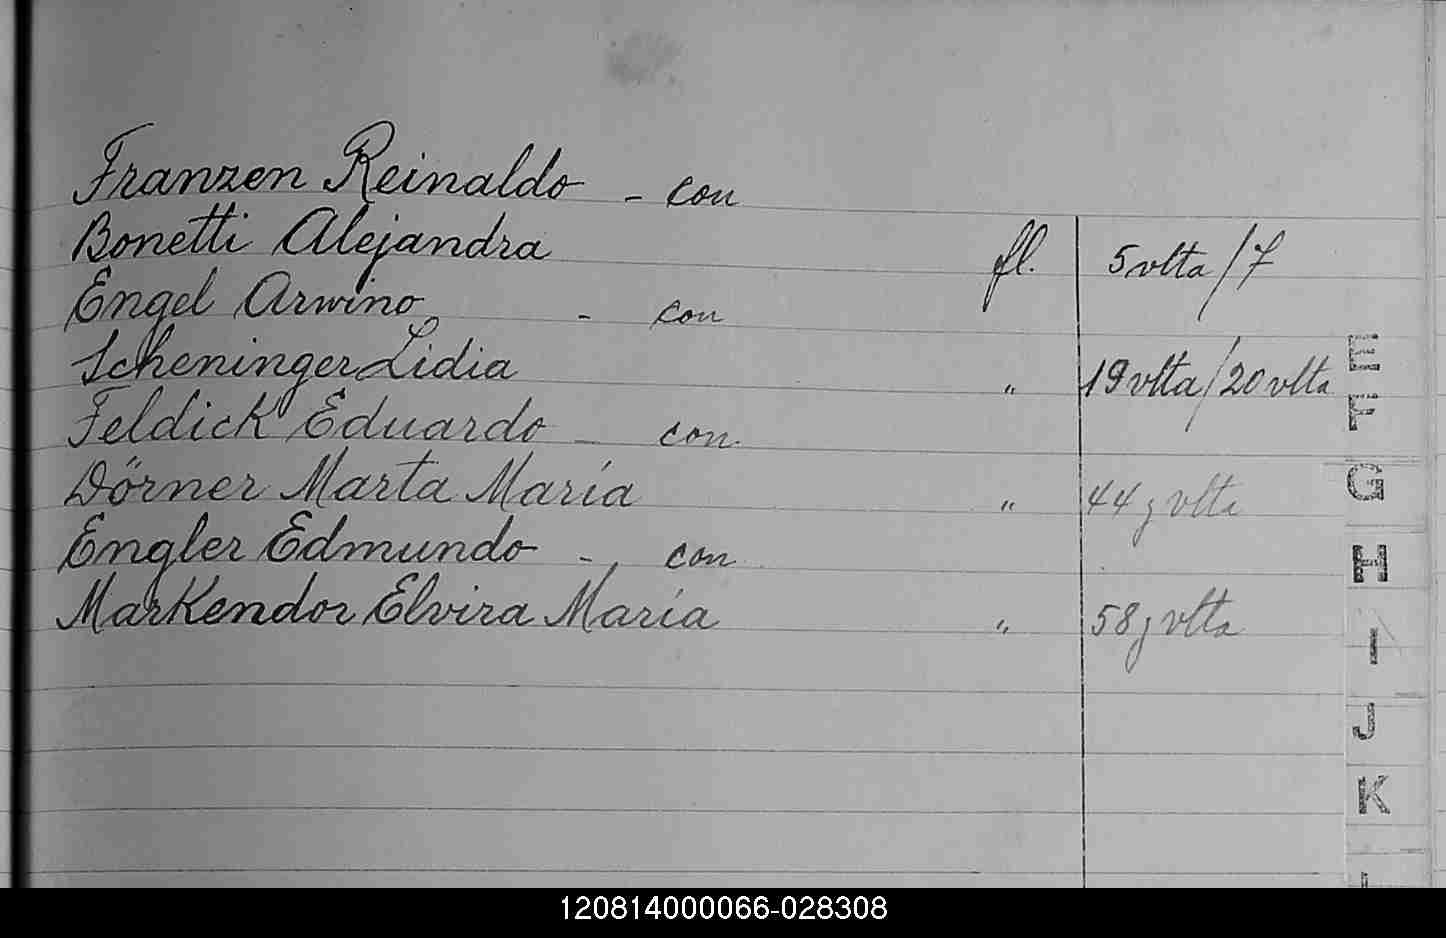 Franzen Reinaldo - con
Bonetti Alejandra fl. 5 vlta/7
Engel Arwino - con
Scheninger Lidia " 19 vlta/20 vlta
Feldick Eduardo - con
Dörner Marta María " 44 y vlta
Engler Edmundo - con
MarKendor Elvira María " 58 y vlta
E
F
G
H
I
J
K
L
120814000066-028308